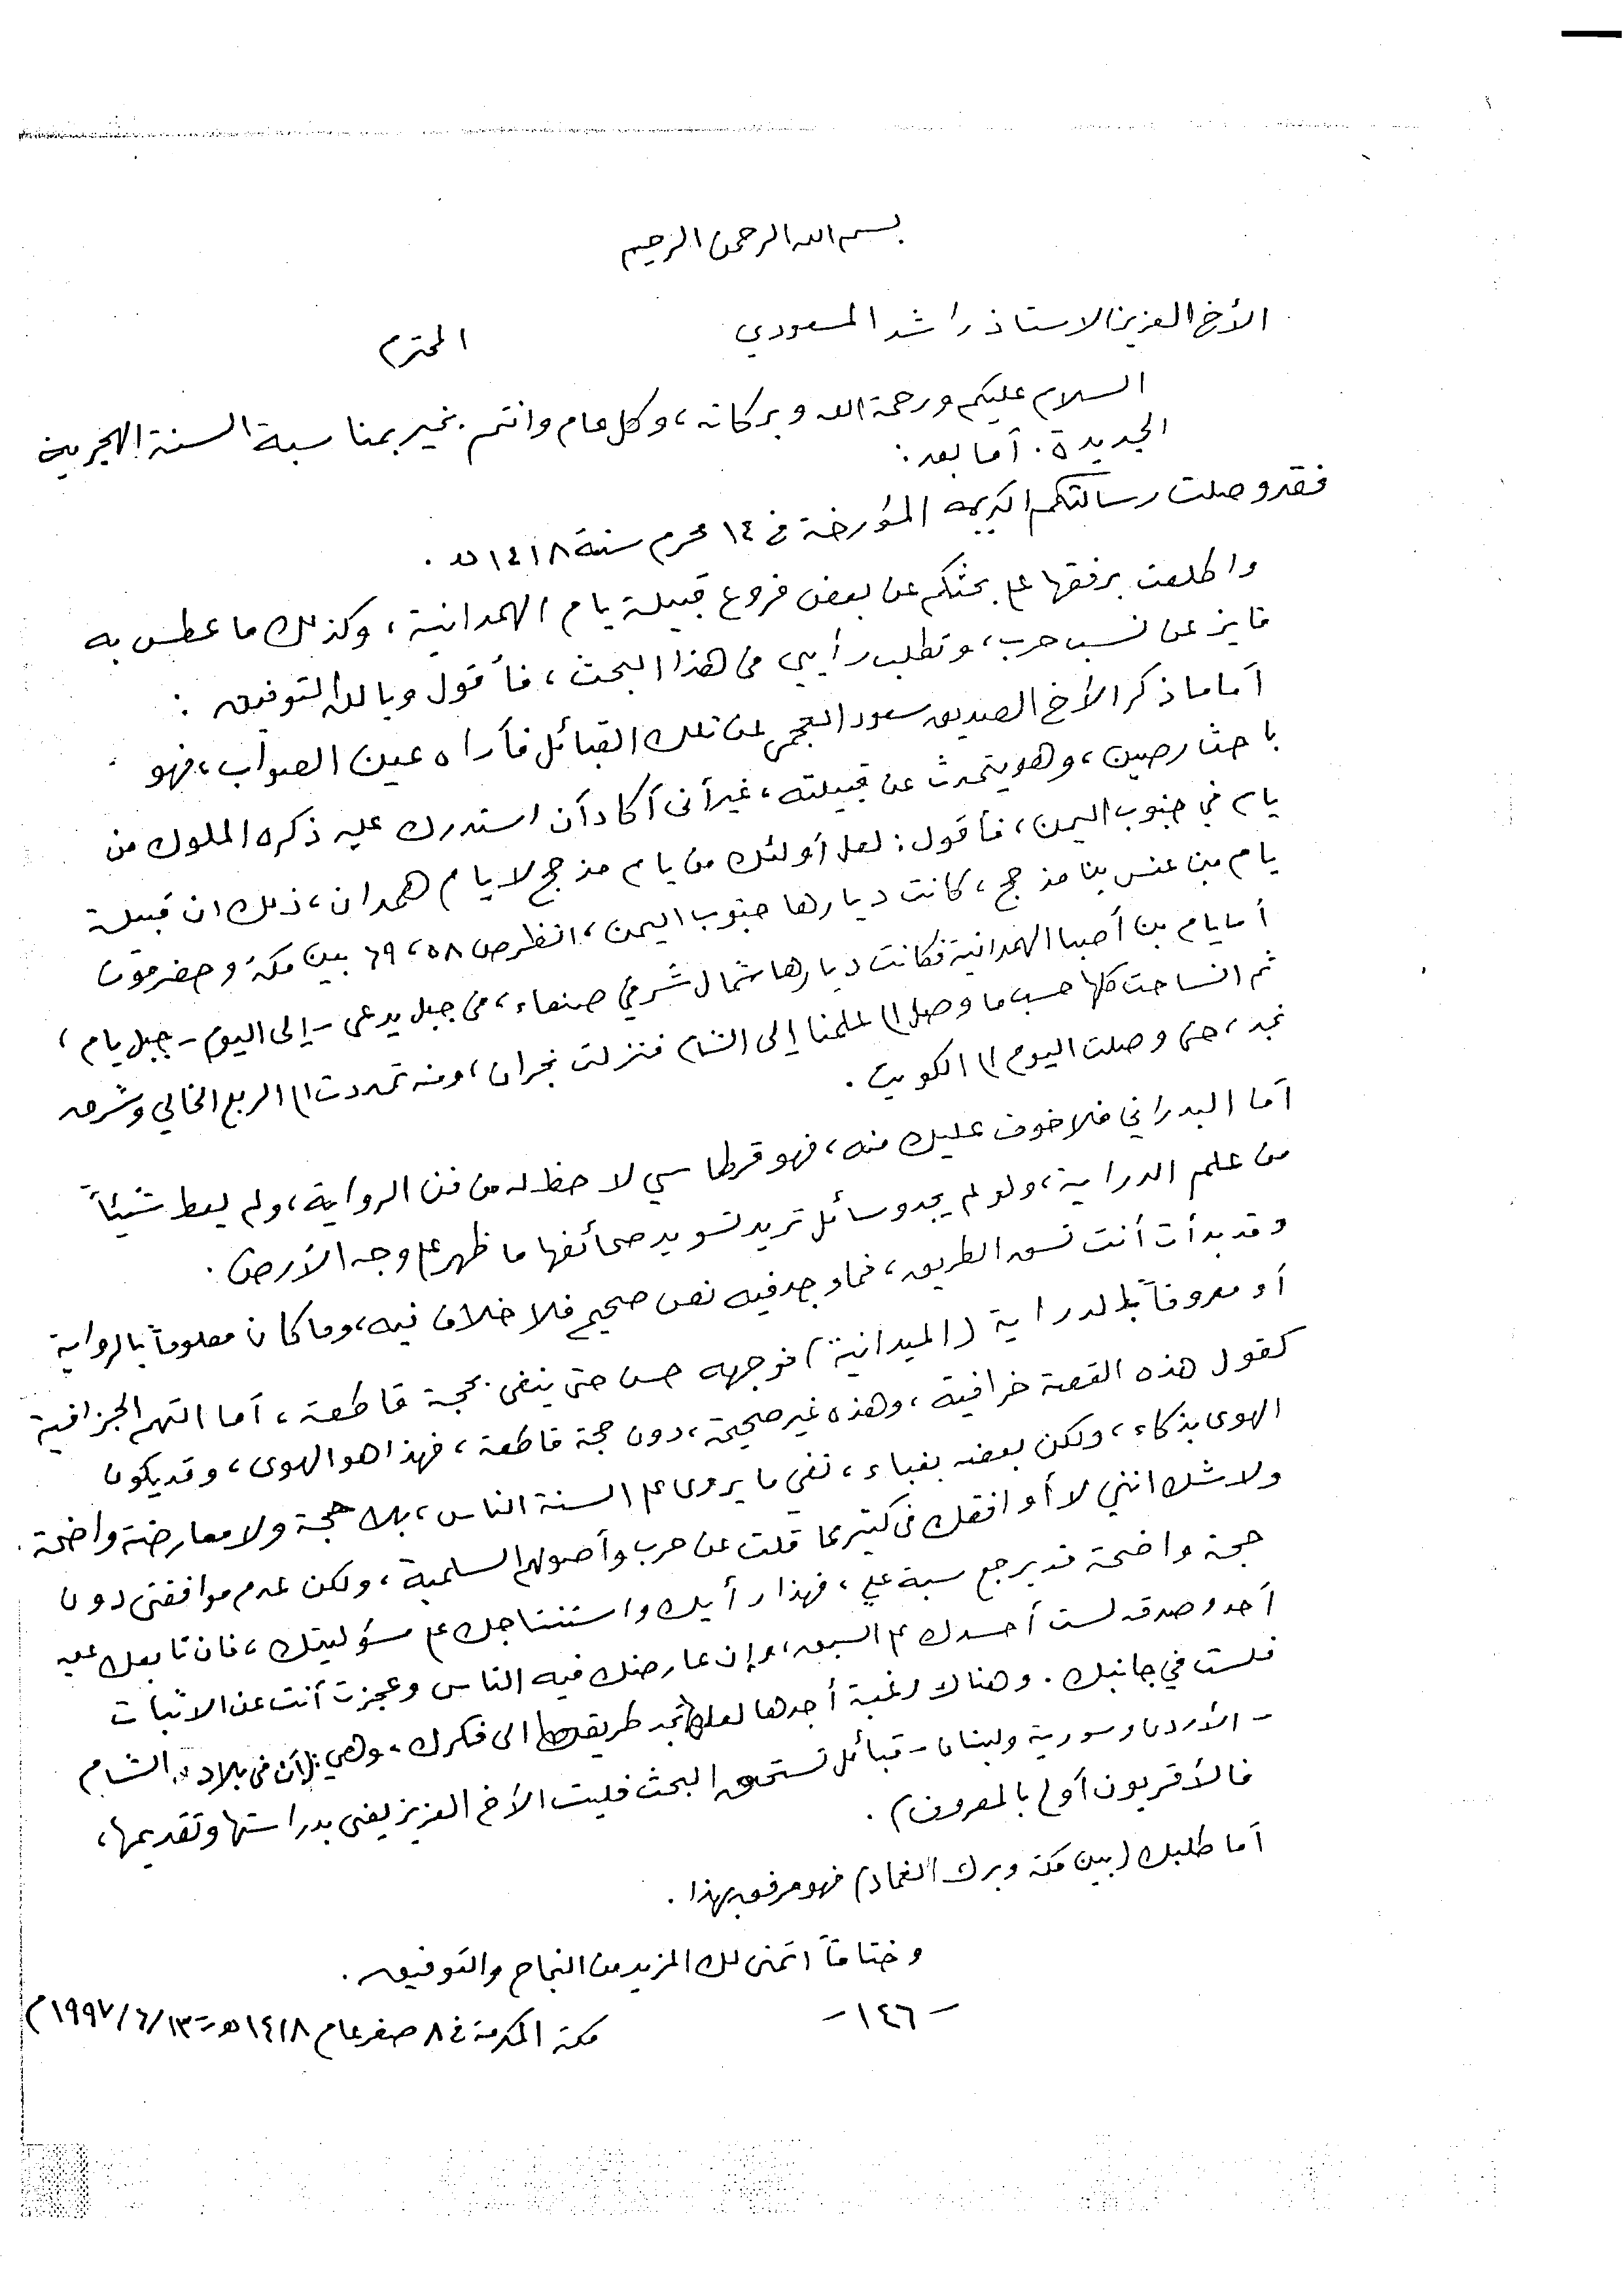 بسم الله الرحمن الرحيم
الأخ العزيز الاستاذ راشد المسعودي المحترم
السلام عليكم ورحمة الله وبركاته، وكل عام وانتم بخير بمناسبة السنة الهجرية
الجديدة. أما بعد:
فقد وصلت رسالتكم الكريمة المؤرخة في ١٤ محرم سنة ١٤١٨ هـ.
واطلعت برفقها على بحثكم عن بعض فروع قبيلة يام الهمدانية، وكذلك ما عطس به
فايز عن نسب حرب، وتطلب رأيي في هذا البحث، فأقول وبالله التوفيق:
أما ما ذكر الأخ الصديق سعود العجمي عن تلك القبائل فأراه عين الصواب، فهو
باحث رصين، وهو يتحدث عن قبيلته، غير أنى أكاد أن استدرك عليه ذكره الملوك من
يام في جنوب اليمن، فأقول: لعل أولئك من يام مذحج لا يام همدان، ذلك ان قبيلة
يام بن عنس بن مذحج، كانت ديارها جنوب اليمن، انظر ص ٥٨، ٦٩ بين مكة وحضرموت
أما يام بن أصبا الهمدانية فكانت ديارها شمال شرقي صنعاء، في جبل يدعى - إلى اليوم - جبل يام،
ثم انساحت كلها حسب ما وصل الى علمنا إلى الشام فنزلت نجران، ومنه تمددت الى الربع الخالي وشرق
نجد، حتى وصلت اليوم الى الكويت.
أما البدراني فلا خوف عليك منه، فهو قرطاسي لا حظ له من فن الرواية، ولم يعط شيئاً
من علم الدراية، ولو لم يجد وسائل تريد تسويد صحائفها ما ظهر على وجه الأرض.
وقد بدأت أنت نسق الطريق، فما وجد فيه نص صحيح فلا خلاف فيه، وما كان معلوماً بالرواية
أو معروفاً بالدراية (الميدانية) فوجهه حسن حتى ينفى بحجة قاطعة، أما التهم الجزافية
كقول هذه القصة خرافية، وهذه غير صحيحة، دون حجة قاطعة، فهذا هو الهوى، وقد يكون
الهوى بذكاء، ولكن بعضه بغباء، نفي ما يروى على السنة الناس، بلا حجة ولا معارضة واضحة.
ولا شك انني لا أوافقك في كثير مما قلت عن حرب وأصولهم السلمية، ولكن عدم موافقتى دون
حجة واضحة قد يرجع سبة علي، فهذا رأيك واستنتاجك على مسؤليتك، فان تابعك عليه
أحد وصدقه لست أحسدك على السبق، وإن عارضك فيه الناس وعجزت أنت عن الاثبات
فلست في جانبك. وهناك رغبة أجدها لعلها تجد طريقها الى فكرك، وهي: أن في بلاد الشام
- الأردن وسورية ولبنان - قبائل تستحق البحث فليت الأخ العزيز يعنى بدراستها وتقديمها،
فالأقربون أولى بالمعروف).
أما طلبك (بين مكة وبرك الغماد) فهو مرفق بهذا.
وختاماً اتمنى لك المزيد من النجاح والتوفيق.
- ١٤٦ -
مكة المكرمة في ٨ صفر عام ١٤١٨ هـ = ١٣/ ٦/ ١٩٩٧ م